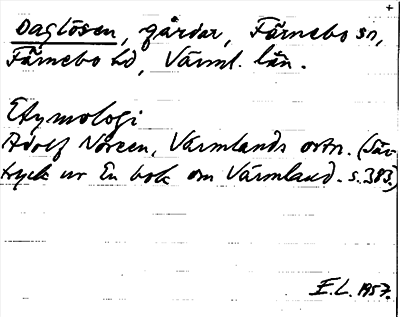 Daglösen, gårdar, Färnebo sn,
Färnebo hd, Värml. län.
Etymologi
Adolf Noreen, Värmlands ortn. (Sär-
tryck ur En bok om Värmland. s. 383.)
E.L. 1957.